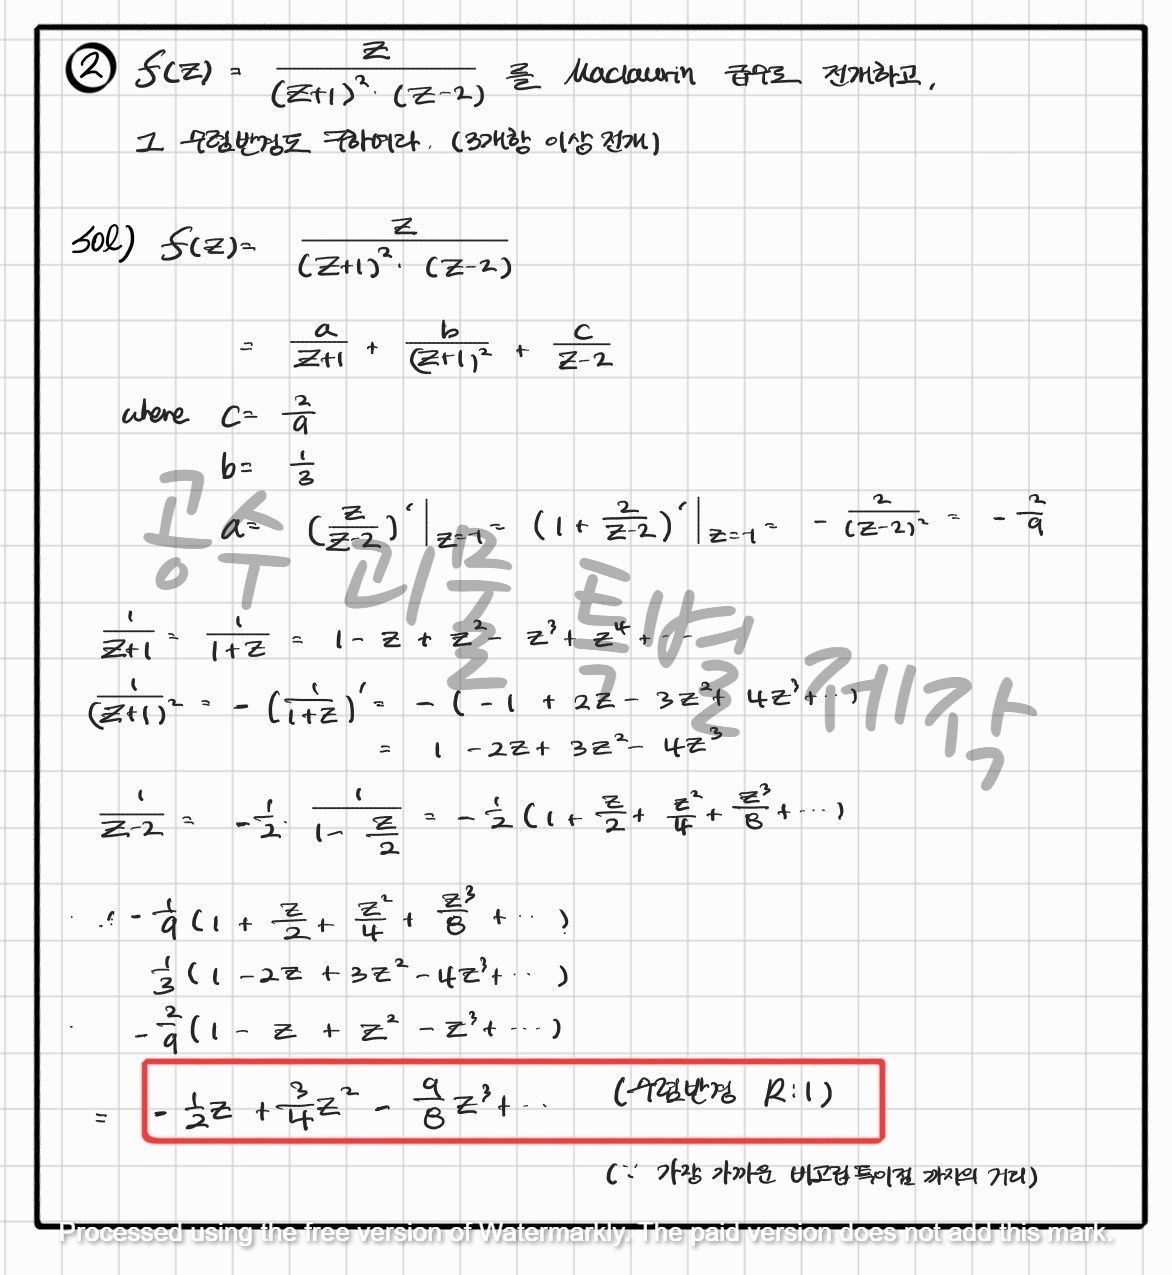 ② f(z) = z / (z+1)²·(z-2) 를 Maclaurin 급수로 전개하고,
그 수렴반경도 구하여라. (3개항 이상 전개)
sol) f(z)= z / (z+1)²·(z-2)
= a/(z+1) + b/(z+1)² + c/(z-2)
where c= 2/9
b= 1/3
a= (z/(z-2))′|z=-1 = (1+ 2/(z-2))′|z=-1 = - 2/(z-2)² = - 2/9
공수 괴물 특별 제작
1/(z+1) = 1/(1+z) = 1- z + z² - z³+ z⁴ + ··
1/(z+1)² = - (1/(1+z))′ = - ( -1 + 2z - 3z²+ 4z³+ ··)
= 1 -2z+ 3z²- 4z³
1/(z-2) = -1/2 · 1/(1- z/2) = - 1/2 (1+ z/2 + z²/4 + z³/8 +···)
∴ - 1/9 (1 + z/2 + z²/4 + z³/8 + ·· )
1/3 (1 -2z + 3z² -4z³+ ·· )
- 2/9 (1 - z + z² - z³+ ···)
= - 1/2 z + 3/4 z² - 9/8 z³+ ·· (수렴반경 R:1)
(∵ 가장 가까운 비고립특이점 까지의 거리)
Processed using the free version of Watermarkly. The paid version does not add this mark.